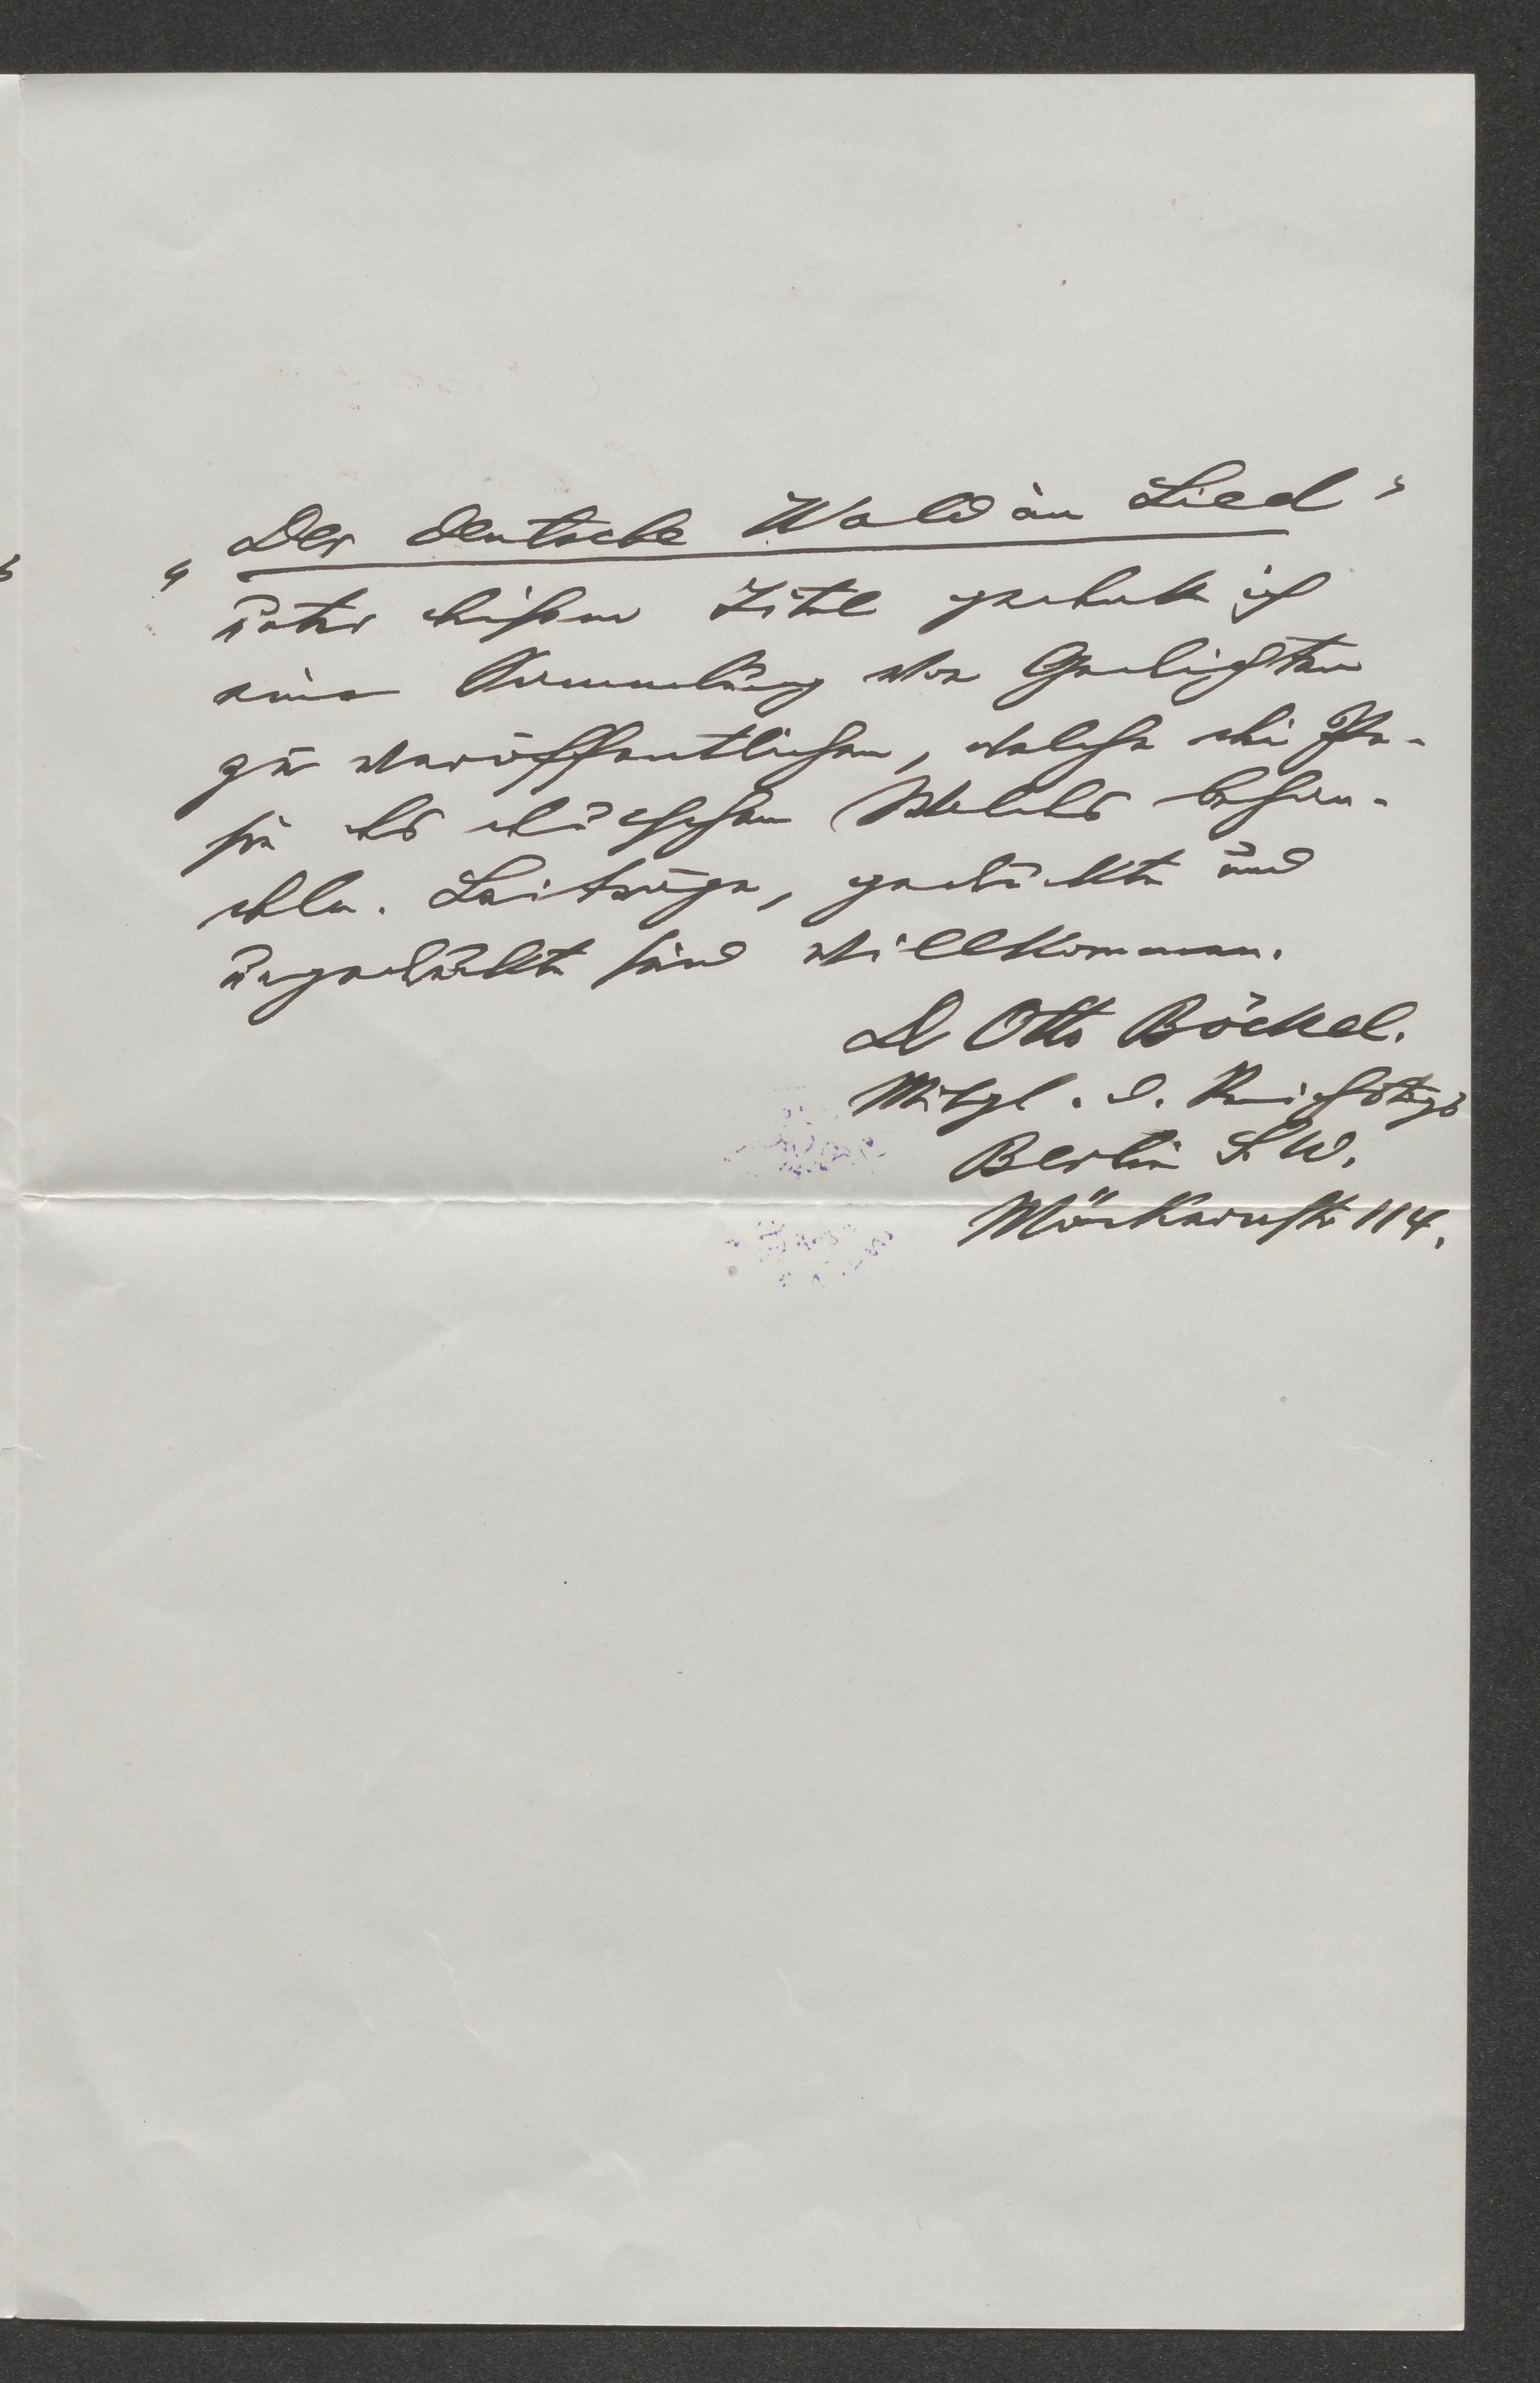 „Der deutsche Wald im Lied"
Unter diesem Titel gedenke ich
eine Sammlung von Gedichten
zu veröffentlichen, welche die Poe-
sie des deutschen Waldes behan-
deln. Beiträge, gedruckte und
ungedruckte sind willkommen.
Dr Otto Böckel.
Mitgl. d. Reichstags
Berlin S.W.
Möckernstr 114.